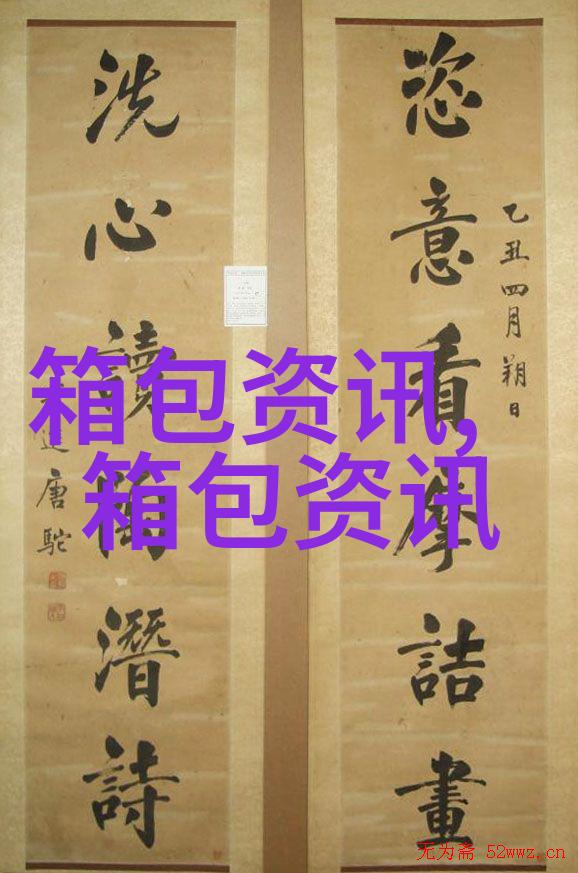 恣意看摩詰畫
乙丑四月朔日
洗心讀陶潛詩
唐駝
箱包资讯,
箱包资讯
无为斋 52wwz.cn